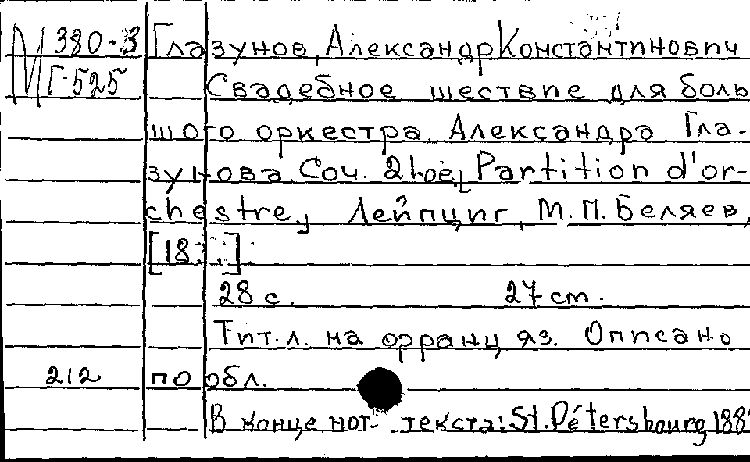 М 380-3 Глазунов, Александр Константинович
Г-525 Свадебное шествие для боль
шого оркестра Александра Гла-
зунова Соч. 21ое, Partition d'or-
chestre, Лейпциг, М.П. Беляев,
[18
28 с. 27 cm.
Тит. л. на франц яз. Описано
212 по обл.
В конце нот текста: St. Pétersbourg 188